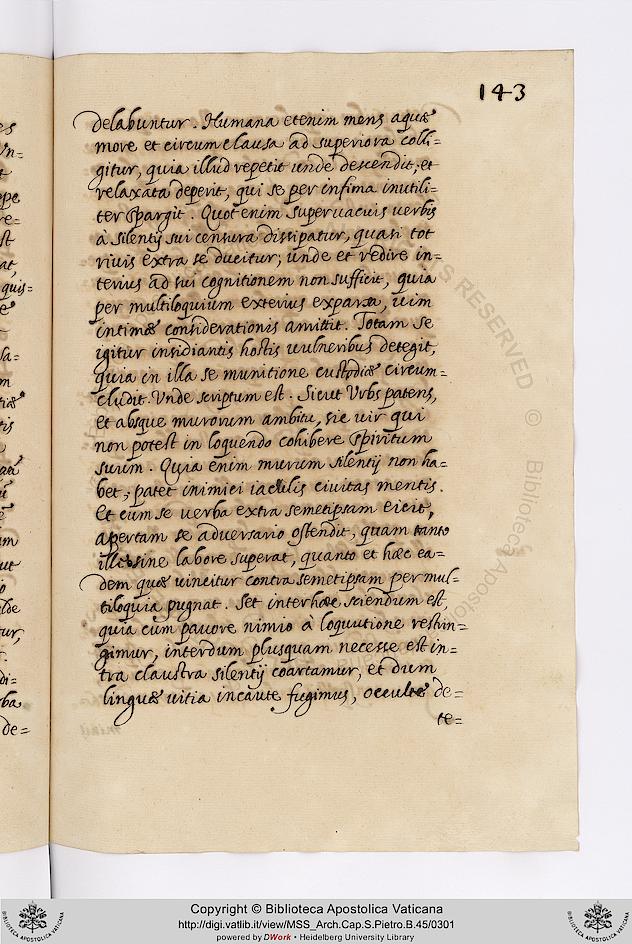 143
delabuntur. Humana etenim mens aquæ
more et circumclausa ad superiora colli-
gitur, quia illud repetit unde descendit; et
relaxata deperit, qui se per infima inutili-
ter spargit. Quot enim supervacuis verbis
à silentij sui censura dissipatur, quasi tot
rivis extra se ducitur; unde et redire in-
terius ad sui cognitionem non sufficit, quia
per multiloquium exterius exparsa, uim
intimæ considerationis amittit. Totam se
igitur insidiantis hostis uulneribus detegit,
quia in illa se munitione custodiæ circum-
cludit. Unde scriptum est. Sicut Urbs patens,
et absque murorum ambitu, sic uir qui
non potest in loquendo cohibere spiritum
suum. Quia enim murum silentij non ha-
bet; patet inimici iaculis civitas mentis.
Et cum se uerba extra semetipsam eicit,
apertam se adversario ostendit, quam tanto
ille sine labore superat, quanto et hæc ea-
dem quæ uincitur contra semetipsam per mul-
tiloquia pugnat. Set inter hæc sciendum est,
quia cum pavore nimio à loquutione restrin=
gimur, interdum plusquam necesse est in-
tra claustra silentij coartamur, et dum
linguæ uitia incaute fugimus, occulte de=
te=
es
Un=
t
epe
re=
st
at,
quis=
e
sa=
m
tiæ
tis
um
ut
io
lde
tur,
di-
rba
de=
RIGHTS RESERVED © Biblioteca Aposto
Copyright © Biblioteca Apostolica Vaticana
http://digi.vatlib.it/view/MSS_Arch.Cap.S.Pietro.B.45/0301
powered by DWork • Heidelberg University Library
BIBLIOTECA APOSTOLICA VATICANA
BIBLIOTECA APOSTOLICA VATICANA